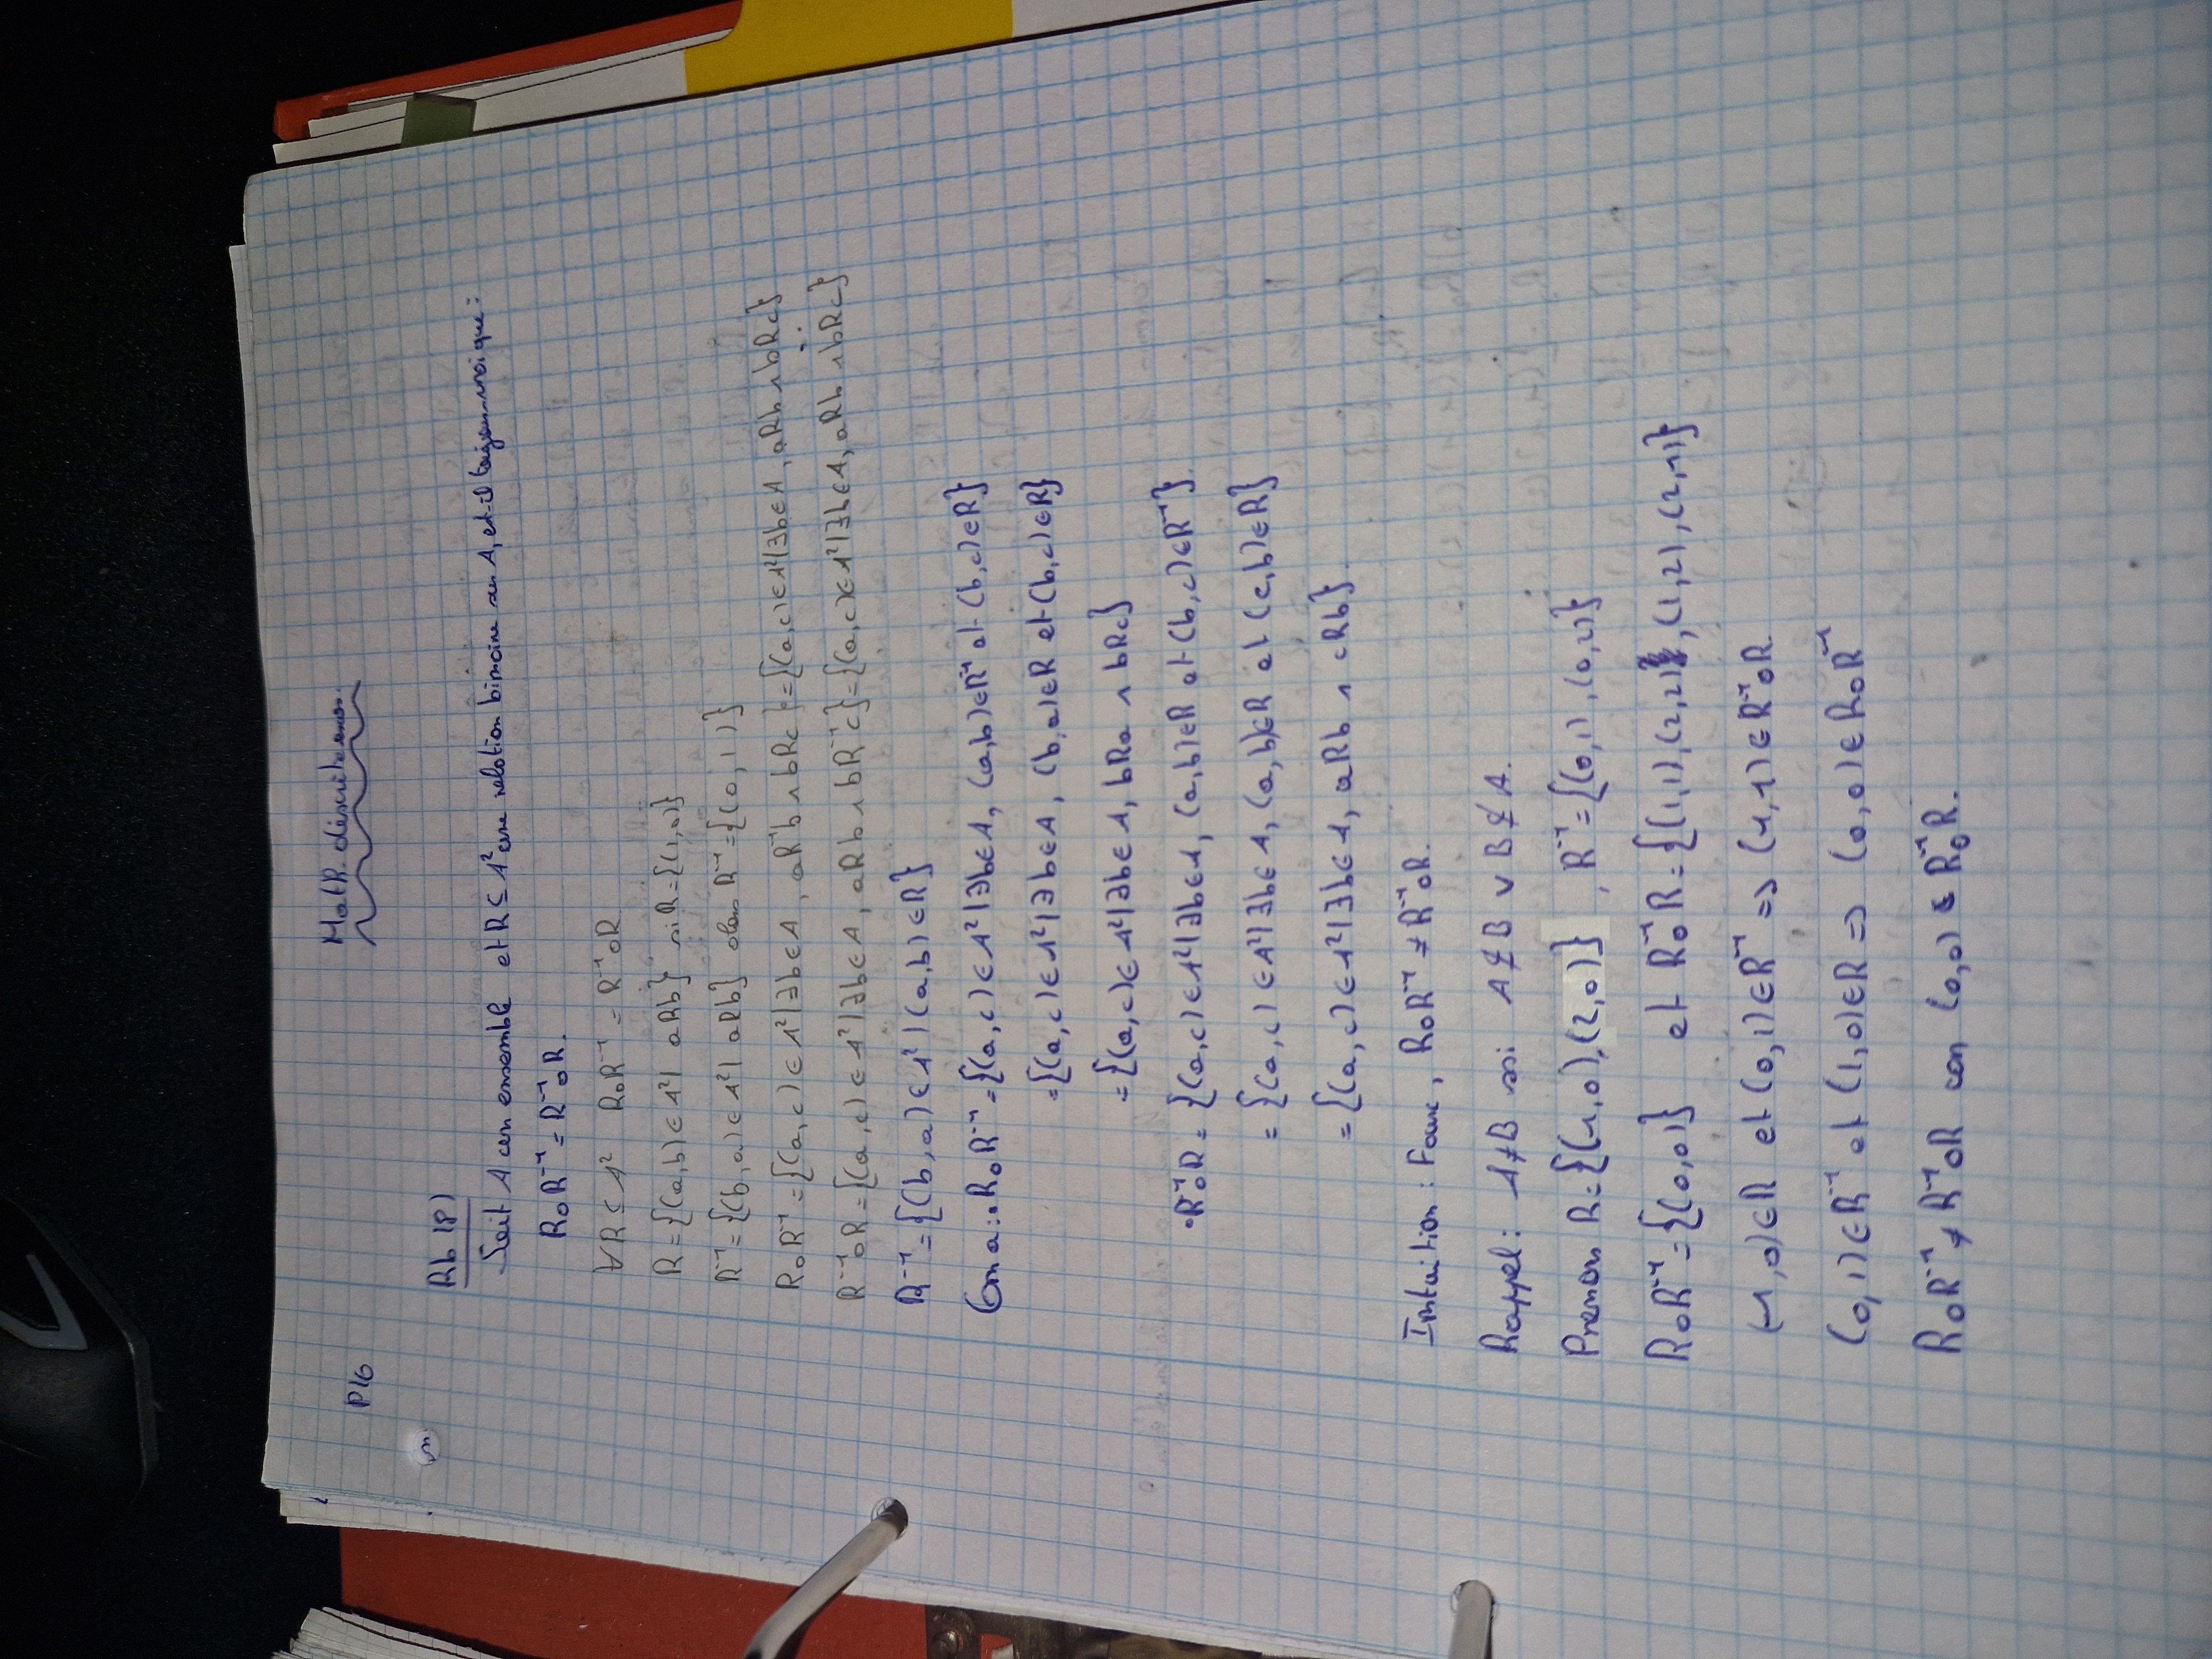 Math. discrète exos.
P16
Rb 18)
Soit A un ensemble et R ⊆ A² une relation binaire sur A, est-il toujours vrai que :
R∘R⁻¹ = R⁻¹∘R.
∀R ⊆ A² R∘R⁻¹ = R⁻¹∘R
R = {(a,b) ∈ A² | aRb} si R = {(1,0)}
R⁻¹ = {(b,a) ∈ A² | aRb} alors R⁻¹ = {(0,1)}
R∘R⁻¹ = {(a,c) ∈ A² | ∃b ∈ A, aR⁻¹b ∧ bRc} = {(a,c) ∈ A² | ∃b ∈ A, aRb ∧ bRc}
R⁻¹∘R = {(a,c) ∈ A² | ∃b ∈ A, aRb ∧ bR⁻¹c} = {(a,c) ∈ A² | ∃b ∈ A, aRb ∧ bRc}
R⁻¹ = {(b,a) ∈ A² | (a,b) ∈ R}
On a : • R∘R⁻¹ = {(a,c) ∈ A² | ∃b ∈ A, (a,b) ∈ R⁻¹ et (b,c) ∈ R}
= {(a,c) ∈ A² | ∃b ∈ A, (b,a) ∈ R et (b,c) ∈ R}
= {(a,c) ∈ A² | ∃b ∈ A, bRa ∧ bRc}
• R⁻¹∘R = {(a,c) ∈ A² | ∃b ∈ A, (a,b) ∈ R et (b,c) ∈ R⁻¹}.
= {(a,c) ∈ A² | ∃b ∈ A, (a,b) ∈ R et (c,b) ∈ R}
= {(a,c) ∈ A² | ∃b ∈ A, aRb ∧ cRb}.
Intuition : Faux, R∘R⁻¹ ≠ R⁻¹∘R.
Rappel : A ≠ B ssi A ⊈ B ∨ B ⊈ A.
Prenons R = {(1,0),(2,0)} , R⁻¹ = {(0,1),(0,2)}
R∘R⁻¹ = {(0,0)} et R⁻¹∘R = {(1,1),(2,2),(1,2),(2,1)}
(1,0) ∈ R et (0,1) ∈ R⁻¹ => (1,1) ∈ R⁻¹∘R.
(0,1) ∈ R⁻¹ et (1,0) ∈ R => (0,0) ∈ R∘R⁻¹
R∘R⁻¹ ≠ R⁻¹∘R car (0,0) R⁻¹∘R.